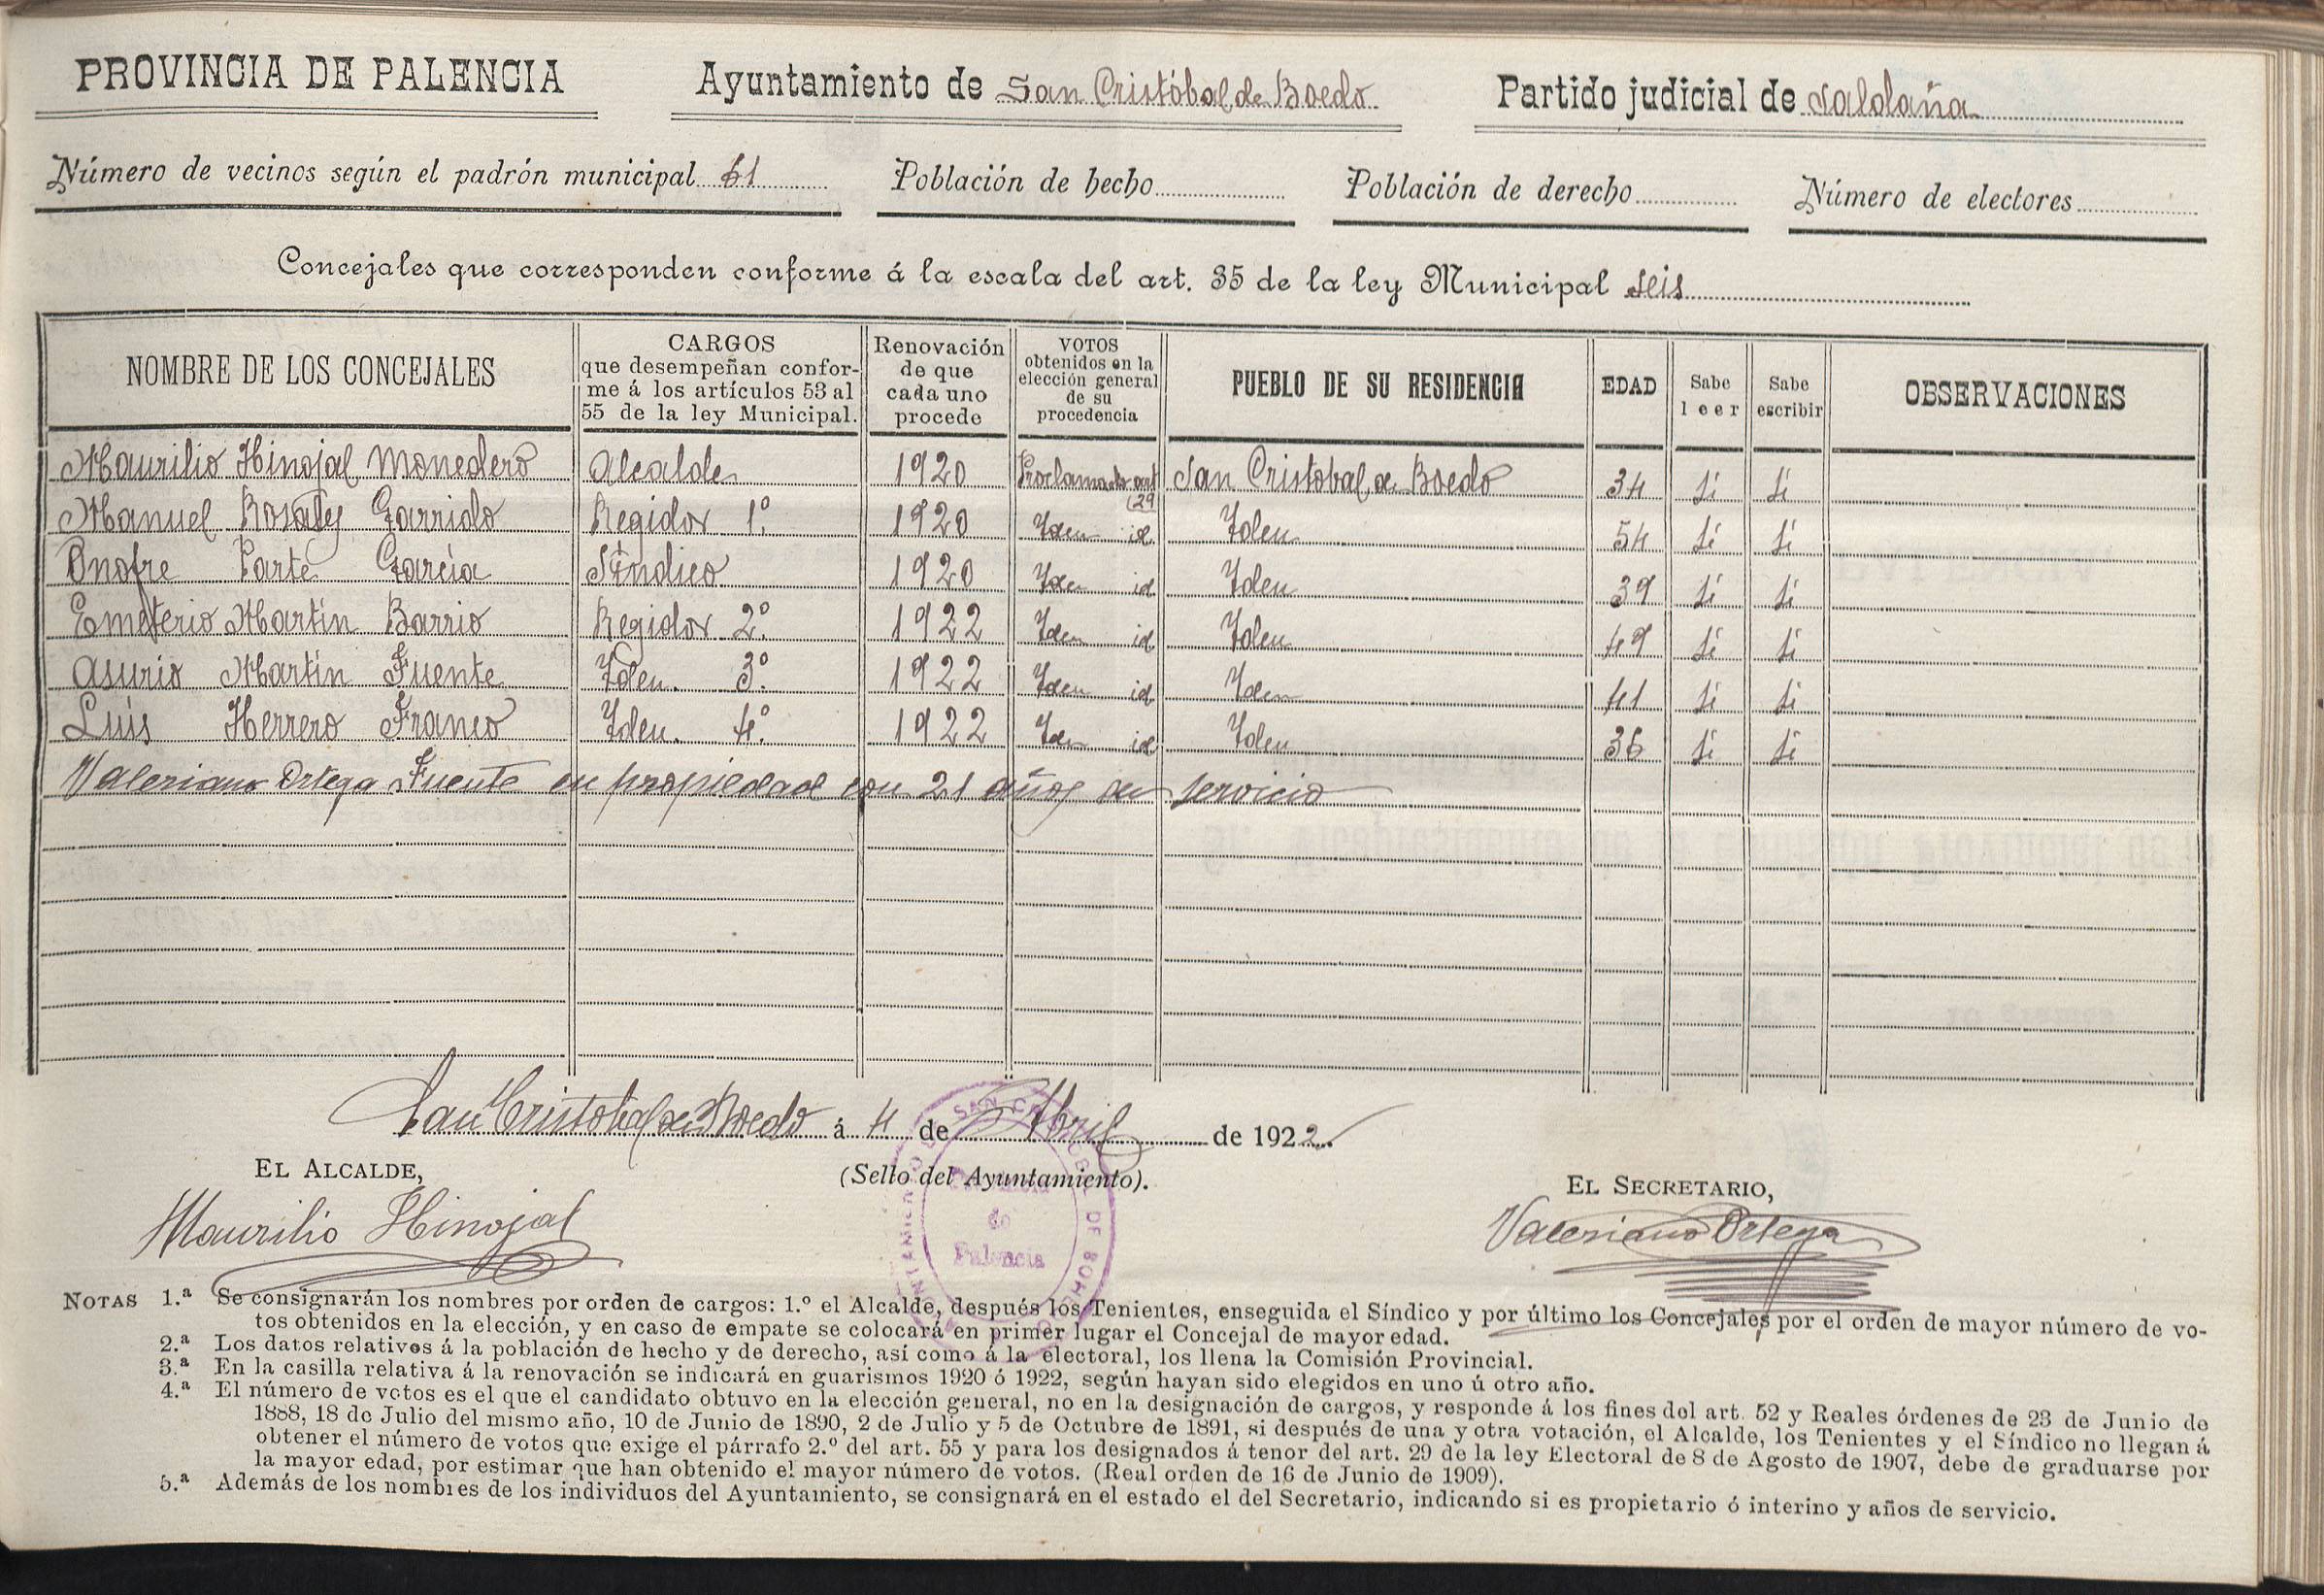 PROVINCIA DE PALENCIA Ayuntamiento de San Cristóbal de Boedo Partido judicial de Saldaña
Número de vecinos según el padrón municipal 61 Población de hecho Población de derecho Número de electores
Concejales que corresponden conforme á la escala del art. 35 de la ley Municipal seis
NOMBRE DE LOS CONCEJALES
CARGOS
que desempeñan confor-
me á los artículos 53 al
55 de la ley Municipal.
Renovación
de que
cada uno
procede
VOTOS
obtenidos en la
elección general
de su
procedencia
PUEBLO DE SU RESIDENCIA
EDAD
Sabe
leer
Sabe
escribir
OBSERVACIONES
Maurilio Hinojal Monedero Alcalde 1920 Proclamado art 29 San Cristobal de Boedo 34 Si Si
Manuel Garrido Regidor 1º 1920 Idem id Idem 54 Si Si
Onofre Parte García Síndico 1920 Idem id Idem 39 Si Si
Emeterio Martín Barrio Regidor 2º 1922 Idem id Idem 49 Si Si
Asurio Martín Fuente Idem. 3º 1922 Idem id Idem 41 Si Si
Luis Herrero Franco Idem. 4º 1922 Idem id Idem 36 Si Si
Valeriano Ortega Fuente en propiedad con 21 años de servicio
San Cristobal de Boedo á 4 de Abril de 1922.
EL ALCALDE,
(Sello del Ayuntamiento).
EL SECRETARIO,
Maurilio Hinojal
Valeriano Ortega
de
Palencia
NOTAS 1.ª Se consignarán los nombres por orden de cargos: 1.º el Alcalde, después los Tenientes, enseguida el Síndico y por último los Concejales por el orden de mayor número de vo-
tos obtenidos en la elección, y en caso de empate se colocará en primer lugar el Concejal de mayor edad.
2.ª Los datos relativos á la población de hecho y de derecho, así como á la electoral, los llena la Comisión Provincial.
3.ª En la casilla relativa á la renovación se indicará en guarismos 1920 ó 1922, según hayan sido elegidos en uno ú otro año.
4.ª El número de votos es el que el candidato obtuvo en la elección general, no en la designación de cargos, y responde á los fines del art. 52 y Reales órdenes de 23 de Junio de
1888, 18 de Julio del mismo año, 10 de Junio de 1890, 2 de Julio y 5 de Octubre de 1891, si después de una y otra votación, el Alcalde, los Tenientes y el Síndico no llegan á
obtener el número de votos que exige el párrafo 2.º del art. 55 y para los designados á tenor del art. 29 de la ley Electoral de 8 de Agosto de 1907, debe de graduarse por
la mayor edad, por estimar que han obtenido el mayor número de votos. (Real orden de 16 de Junio de 1909).
5.ª Además de los nombres de los individuos del Ayuntamiento, se consignará en el estado el del Secretario, indicando si es propietario ó interino y años de servicio.